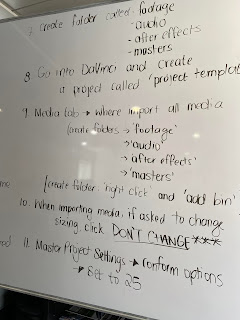 7. Create folder called: footage
- audio
- after effects
- masters
8. Go into DaVinci and create
a project called 'project templat
9 Media tab → where import all media
Create folders → 'footage'
→ 'audio'
→ after effects'
→ 'masters'
(create folder: 'right click' and 'add bin'
10. When importing media, if asked to change
sizing, click DON'T CHANGE***
11. Master Project Settings → conform options
→ set to 25